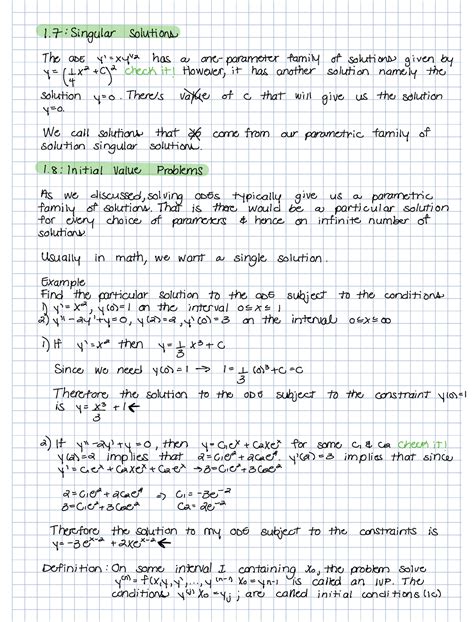 1.7: Singular Solutions
The ODE y' = xy^1/2 has a one-parameter family of solutions given by
y = (1/4 x² + C)² check it! However, it has another solution namely the
solution y=0. There's value of C that will give us the solution
y=0.
We call solutions that come from our parametric family of
solution singular solutions.
1.8: Initial Value Problems
As we discussed, solving ODEs typically give us a parametric
family of solutions. That is there would be a particular solution
for every choice of parameters & hence an infinite number of
solutions.
Usually in math, we want a single solution.
Example
Find the particular solution to the ODE subject to the conditions
1) y' = x², y(0)=1 on the interval 0≤x≤1
2) y''-2y'+y=0, y(2)=2, y'(2)=3 on the interval 0≤x≤∞
1) If y' = x² then y = 1/3 x³ + C
Since we need y(0)=1 → 1 = 1/3 (0)³ + C = C
Therefore the solution to the ODE subject to the constraint y(0)=1
is y = x³/3 + 1 ←
2) If y''-2y'+y=0, then y = C₁eˣ + C₂xeˣ for some C₁ & C₂ check it!
y(2)=2 implies that 2=C₁e²+2C₂e², y'(2)=3 implies that since
y' = C₁eˣ + C₂xeˣ + C₂eˣ → 3=C₁e²+3C₂e²
2=C₁e²+2C₂e² ⇒ C₁ = -3e⁻²
3=C₁e²+3C₂e² C₂ = 2e⁻²
Therefore the solution to my ODE subject to the constraints is
y = -3eˣ⁻² + 2xeˣ⁻² ←
Definition: On some interval I containing x₀, the problem solve
y⁽ⁿ⁾ = f(x,y,y',..., y⁽ⁿ⁻¹⁾ x₀ = yₙ₋₁ is called an IVP. The
conditions y⁽ʲ⁾ x₀ = yⱼ ; are called initial conditions (IC)